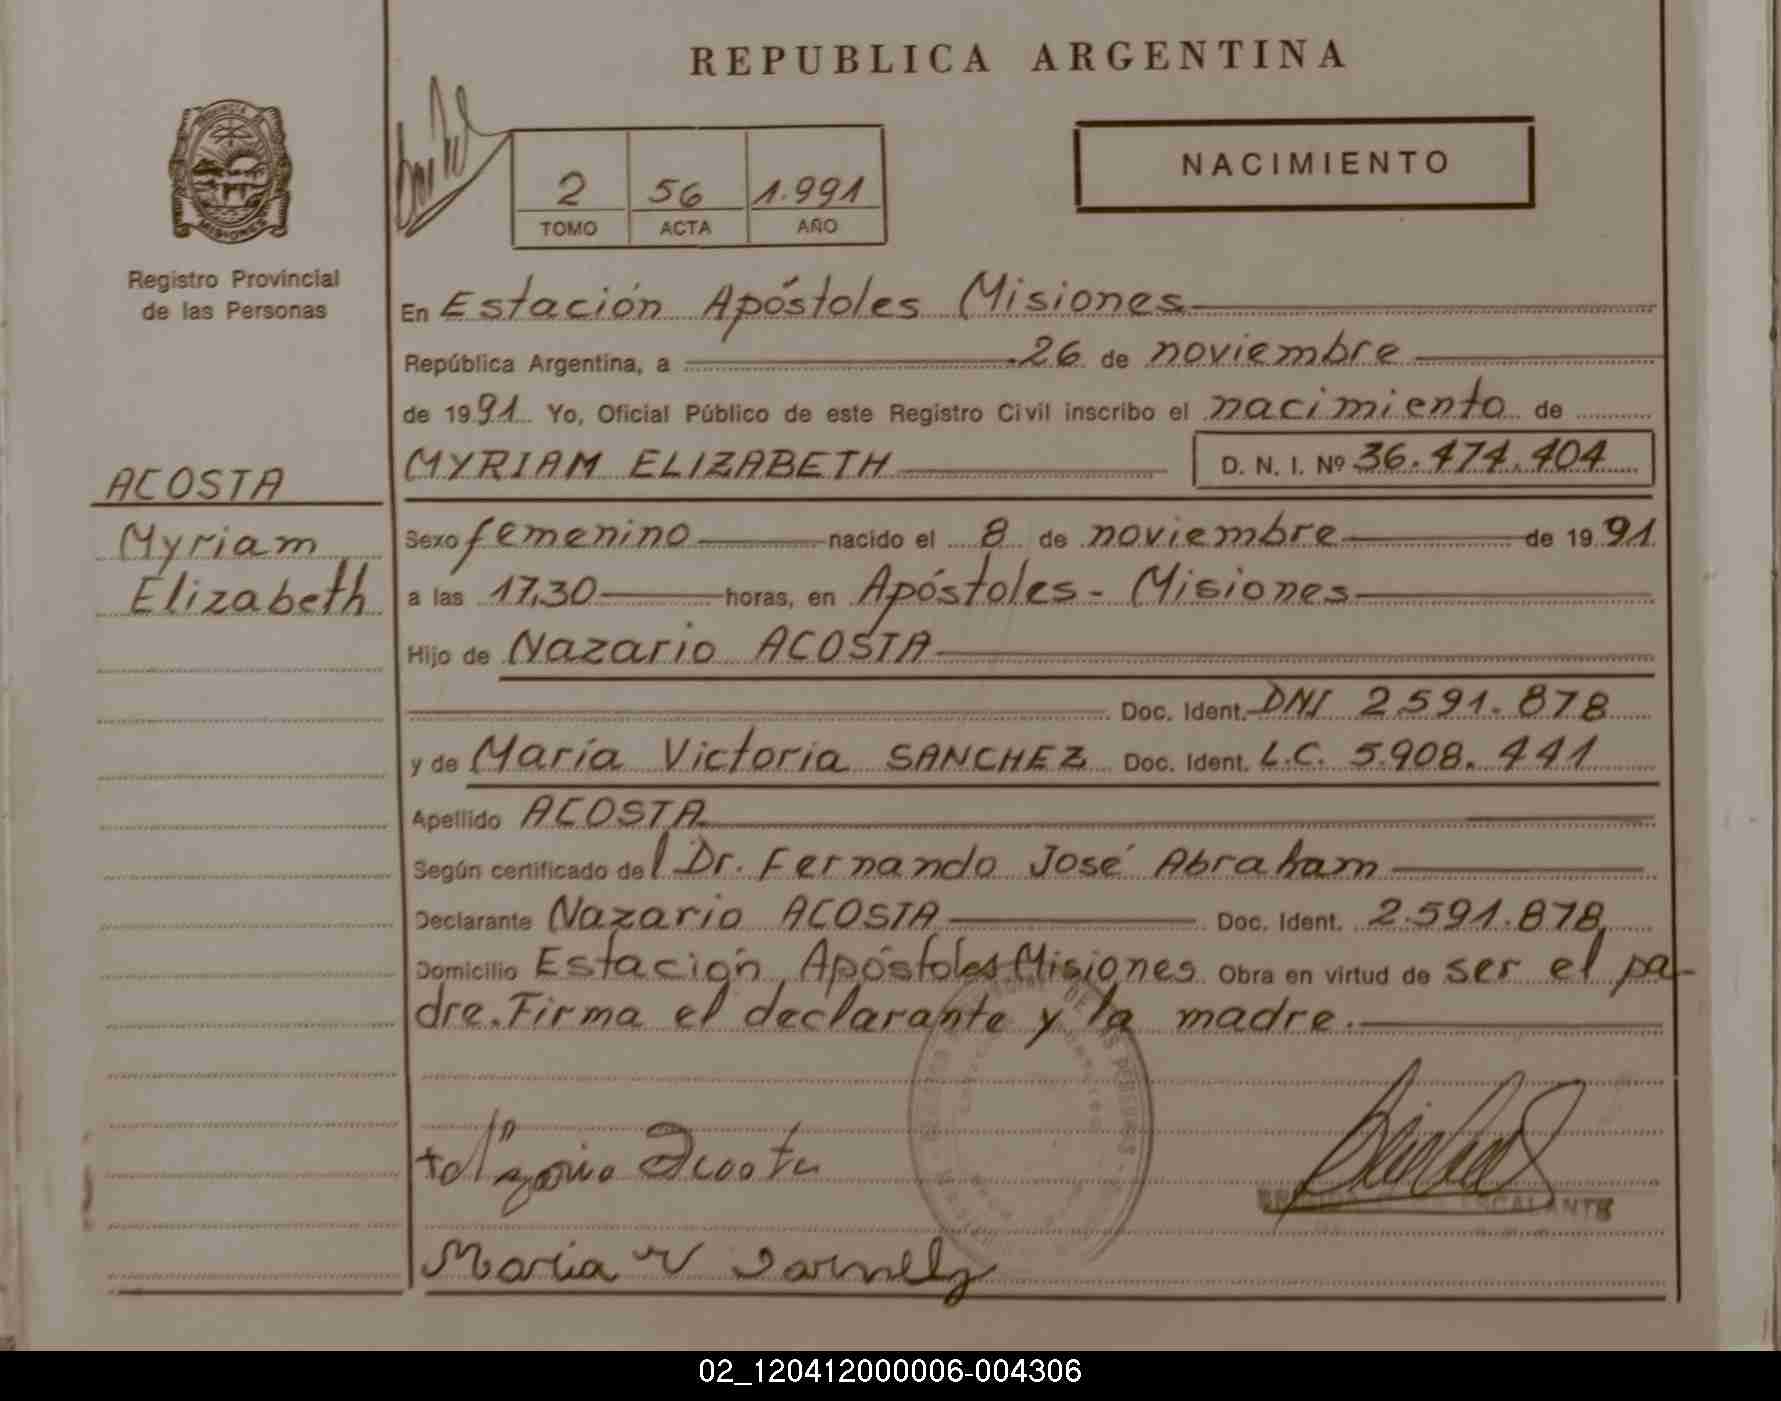 REPUBLICA ARGENTINA
PROVINCIA
MISIONES
Registro Provincial
de las Personas
2 56 1.991
TOMO ACTA AÑO
NACIMIENTO
En Estación Apóstoles Misiones
República Argentina, a 26 de noviembre
de 1991 Yo, Oficial Público de este Registro Civil inscribo el nacimiento de
MYRIAM ELIZABETH D. N. I. Nº 36.474.404
ACOSTA
Myriam
Elizabeth
Sexo femenino nacido el 8 de noviembre de 1991
a las 17,30 horas, en Apóstoles - Misiones
Hijo de Nazario ACOSTA
Doc. Ident. DNI 2.591.878
y de María Victoria SANCHEZ Doc. Ident. L.C. 5.908.441
Apellido ACOSTA
Según certificado del Dr. Fernando José Abraham
Declarante Nazario ACOSTA Doc. Ident. 2.591.878
Domicilio Estación Apóstoles Misiones Obra en virtud de ser el pa-
dre. Firma el declarante y la madre.
Acosta
ESCALANTE
Maria V
02_120412000006-004306